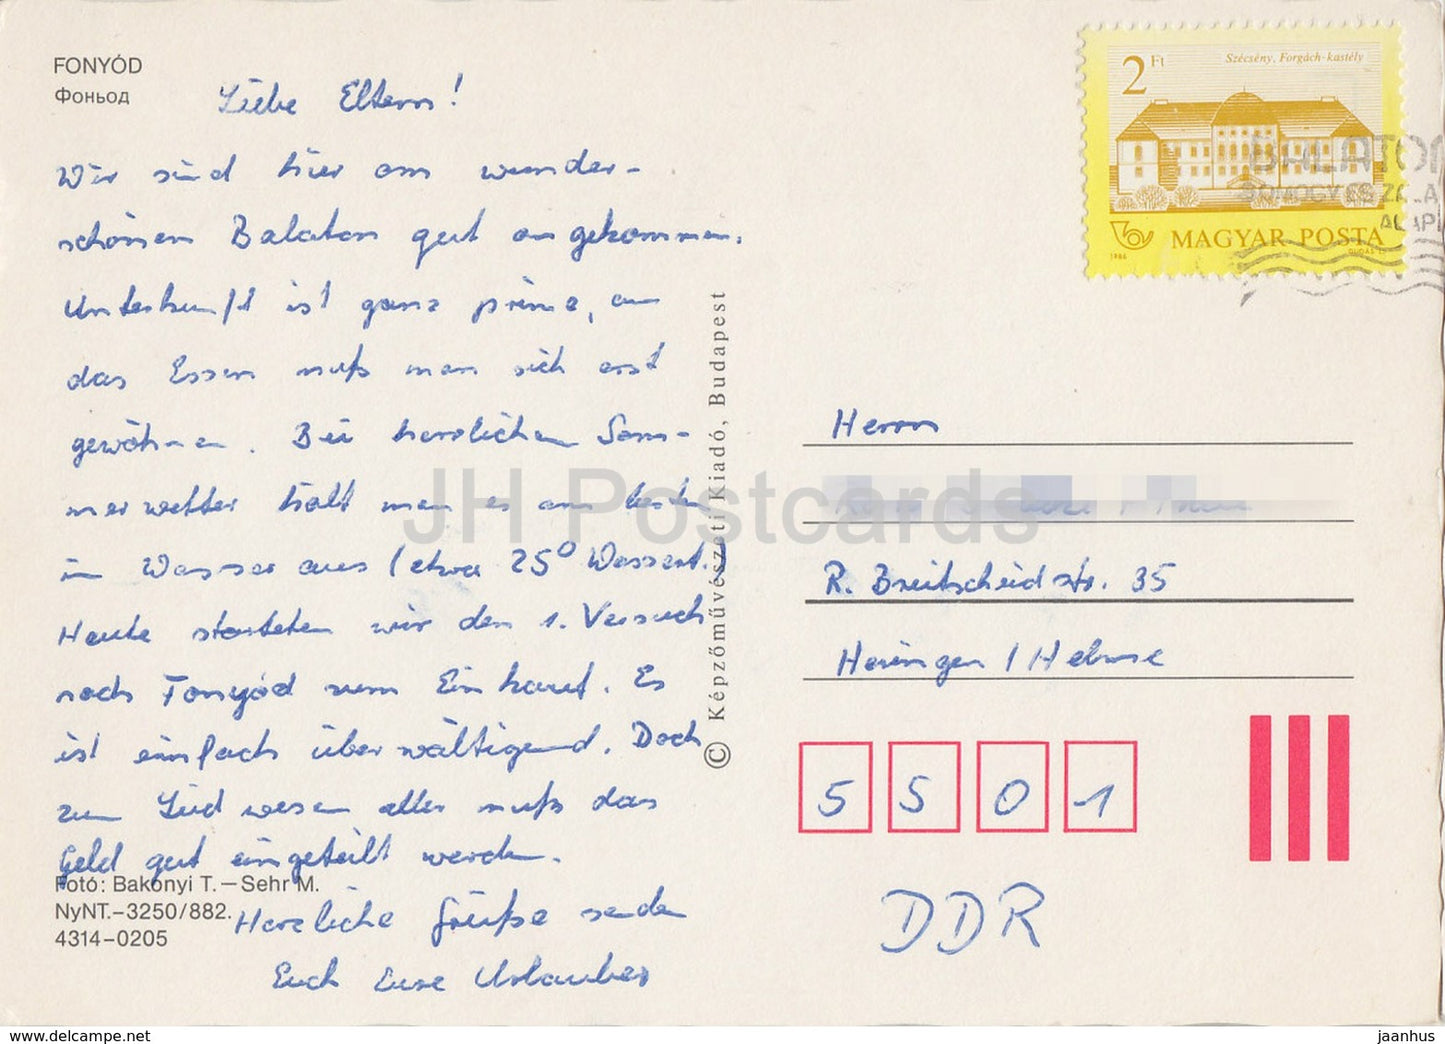 FONYÓD
Фоньод
Liebe Eltern!
Wir sind hier am wunder-
schönen Balaton gut angekommen.
Unterkunft ist ganz prima, an
das Essen muß man sich erst
gewöhnen. Bei herrlichem Som-
merwetter hält man es am besten
im Wasser aus (etwa 25° Wassert.)
Heute starteten wir den 1. Versuch
nach Fonyód zum Einkauf. Es
ist einfach überwältigend. Doch
zum Leidwesen aller muß das
Geld gut eingeteilt werden.
Herzliche Grüße senden
Euch Eure Urlauber
Fotó: Bakonyi T. – Sehr M.
NyNT.–3250/882.
4314–0205
© Képzőművészeti Kiadó, Budapest
2 Ft
Szécsény, Forgách-kastély
MAGYAR POSTA
1986
BALATON
SOMOGY ES ZALA
Herrn
R. Breitscheidstr. 35
Heringen / Helme
5501
DDR
JH Postcards
www.delcampe.net
jaanhus